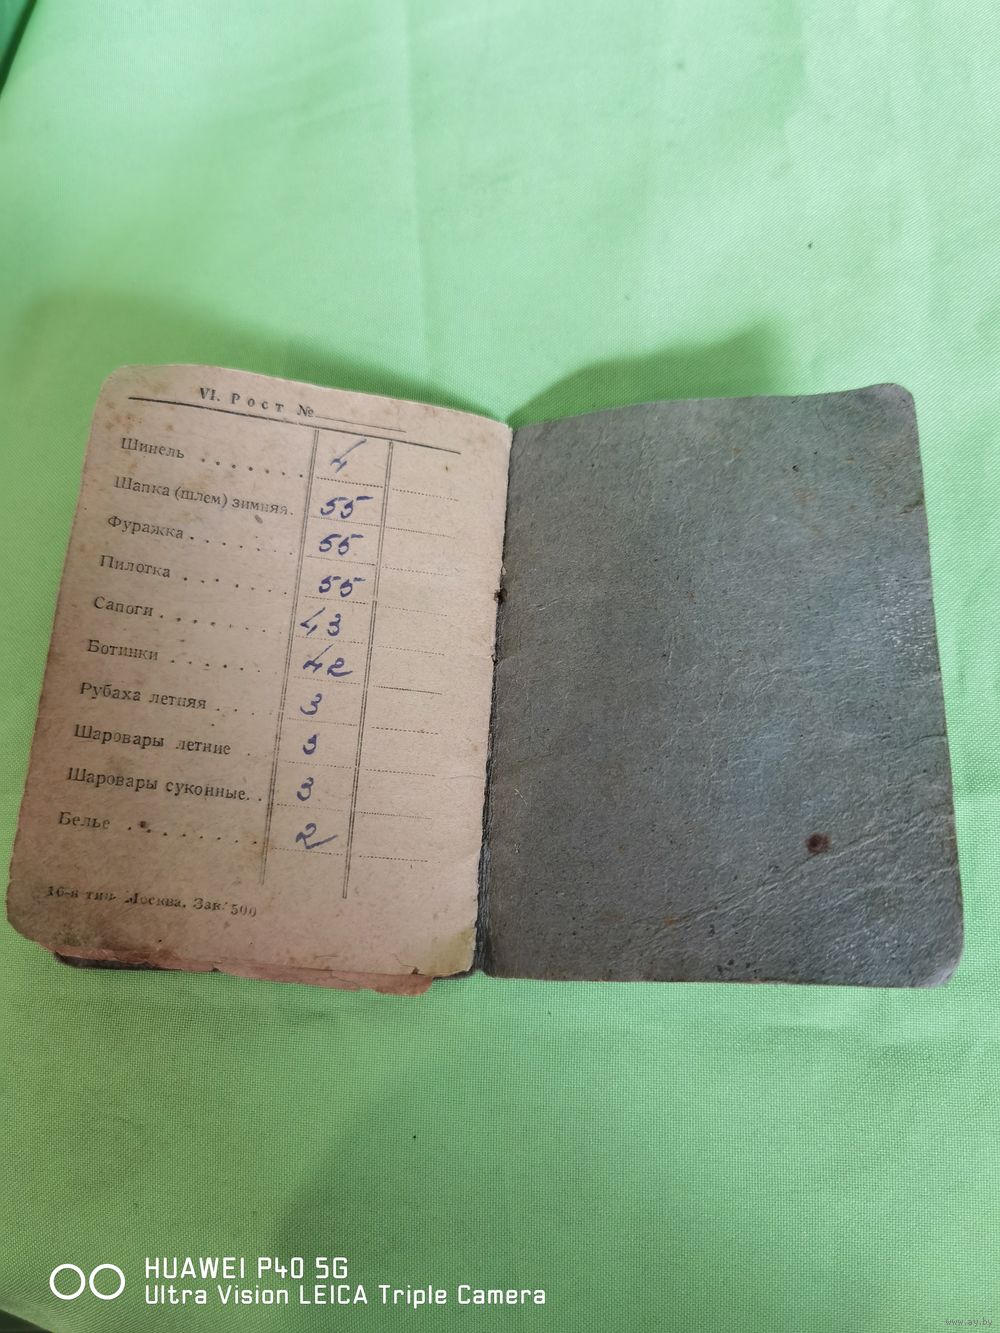 VI. Рост №
Шинель . . . . . . . 4
Шапка (шлем) зимняя. 55
Фуражка . . . . . . . 55
Пилотка . . . . . . 55
Сапоги . . . . . . . 43
Ботинки . . . . . . 42
Рубаха летняя . . . . 3
Шаровары летние . . 3
Шаровары суконные. . 3
Белье . . . . . . . . 2
16-я тип. Москва. Зак. 500
HUAWEI P40 5G
Ultra Vision LEICA Triple Camera
www.ay.by